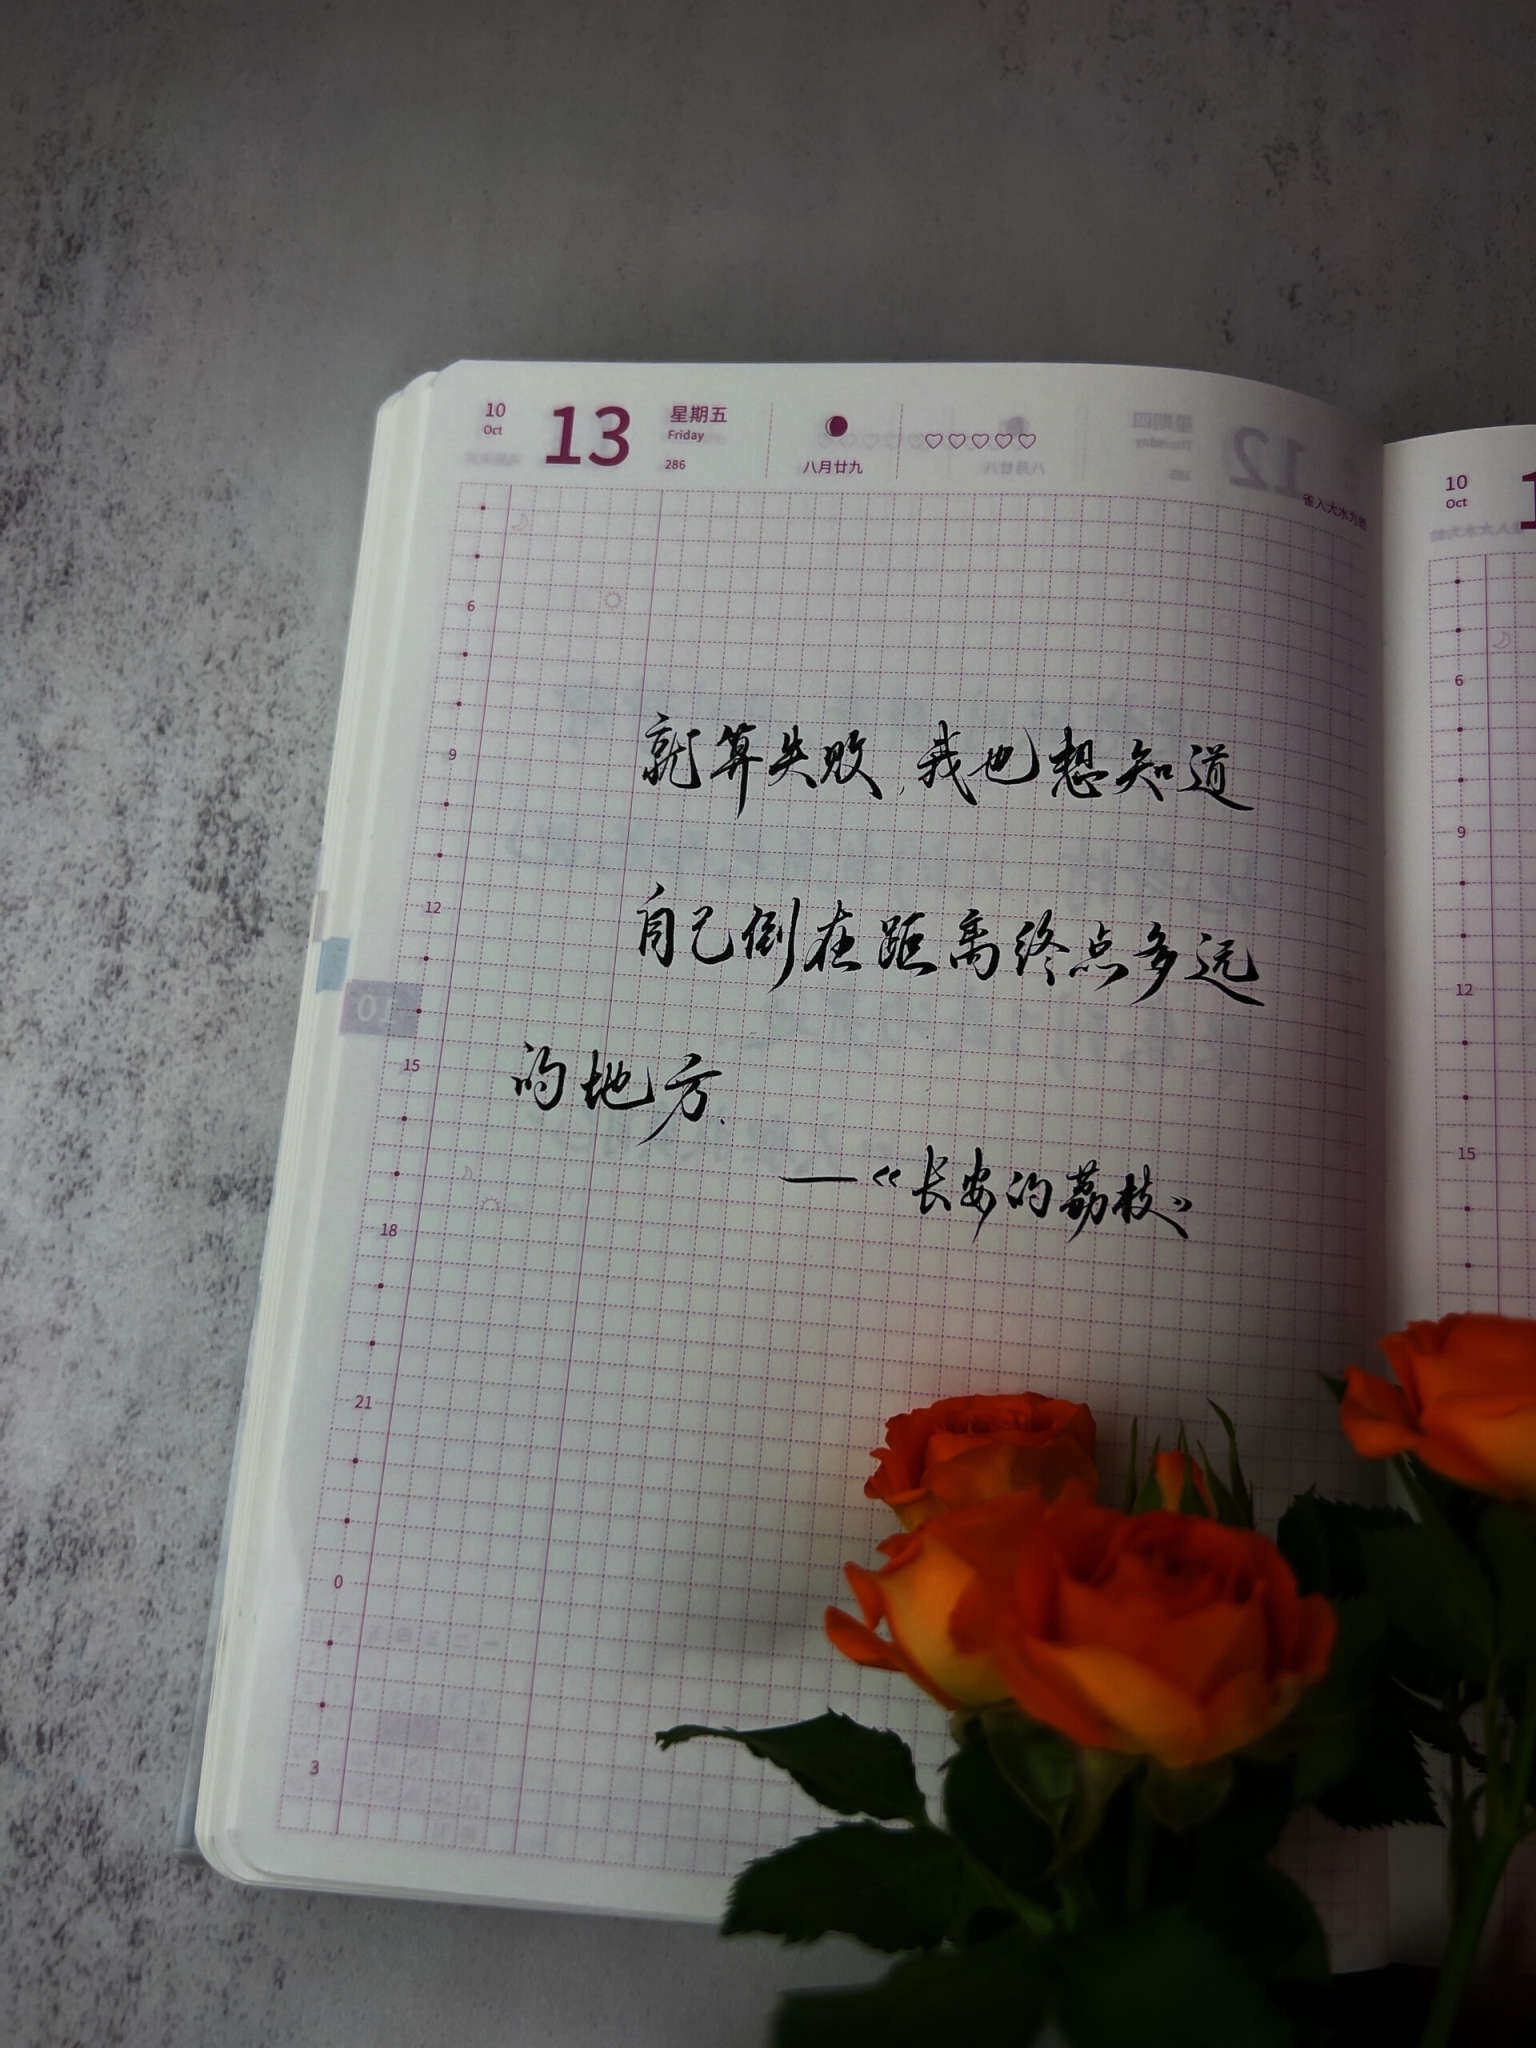 10
Oct
13
星期五
Friday
286
八月廿九
雀入大水为蛤
6
9
12
15
18
21
0
3
就算失败,我也想知道
自己倒在距离终点多远
的地方.
—《长安的荔枝》
01
10
Oct
1
6
9
12
15